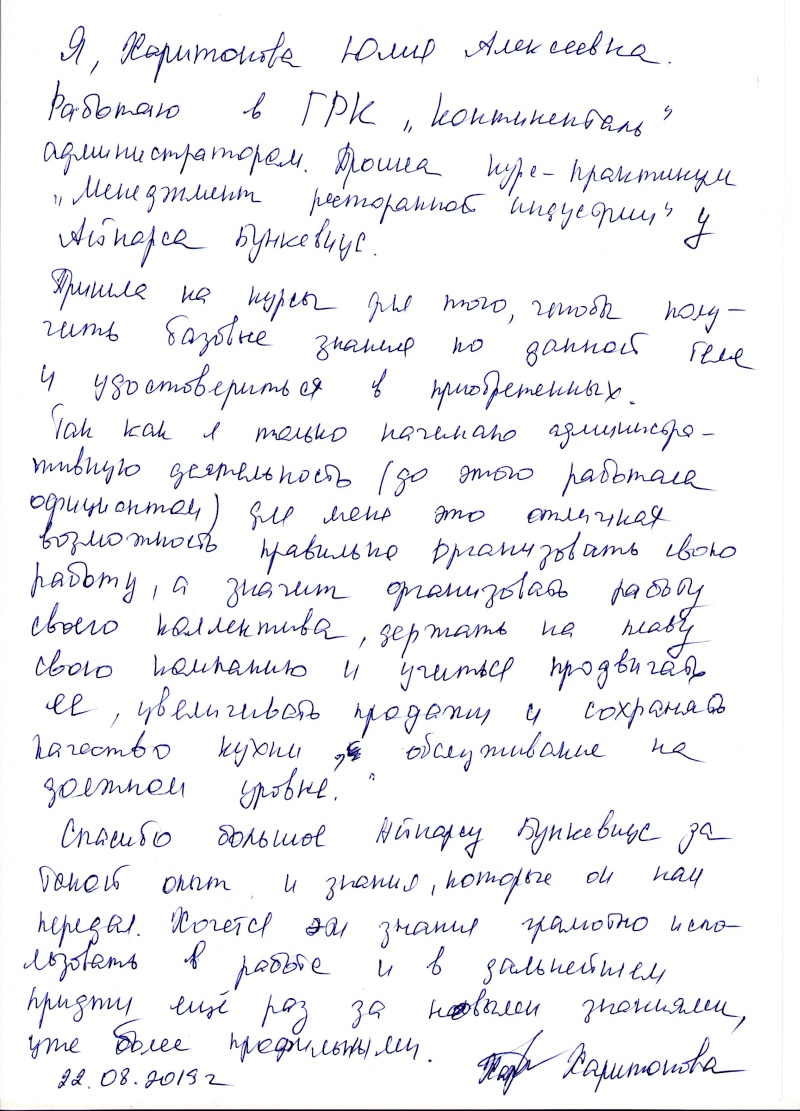 Я, Харитонова Юлия Алексеевна.
Работаю в ГРК „Континенталь"
администратором. Прошла курс-практикум
„Менеджмент ресторанной индустрии" у
Айнарса Бункевицс.
Пришла на курсы для того, чтобы полу-
чить базовые знания по данной теме
и удостовериться в приобретенных.
Так как я только начинаю администра-
тивную деятельность (до этого работала
официантом) для меня это отличная
возможность правильно организовать свою
работу, а значит организовать работу
своего коллектива, держать на плаву
свою компанию и учиться продвигать
ее, увеличивать продажи и сохранять
качество кухни, обслуживание на
должном уровне."
Спасибо большое Айнарсу Бункевицс за
такой опыт и знания, которые он нам
передал. Хочется эти знания грамотно испо-
льзовать в работе и в дальнейшем
придти ещё раз за новыми знаниями,
уже более профильными.
22.08.2019г Харитонова